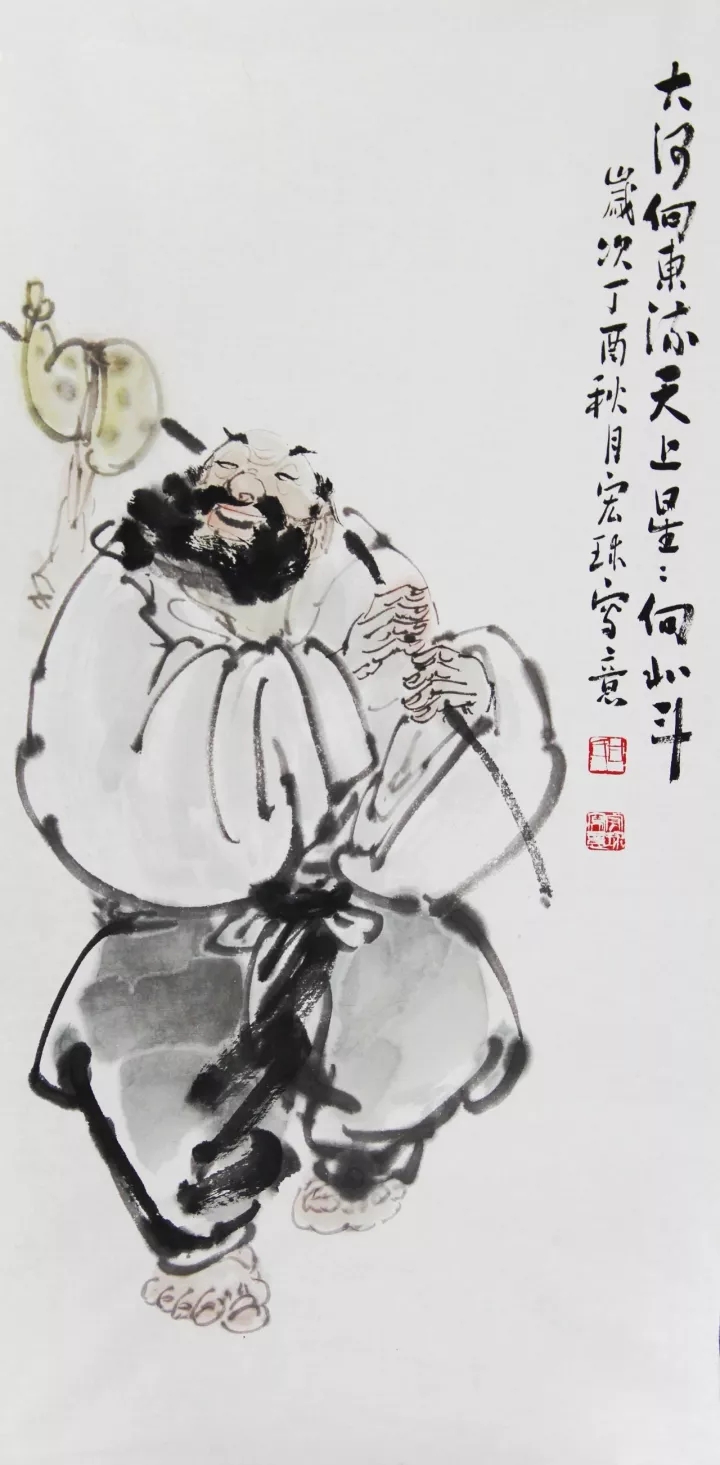 大河向東流天上星〻向北斗
歲次丁酉秋月宏珠寫意